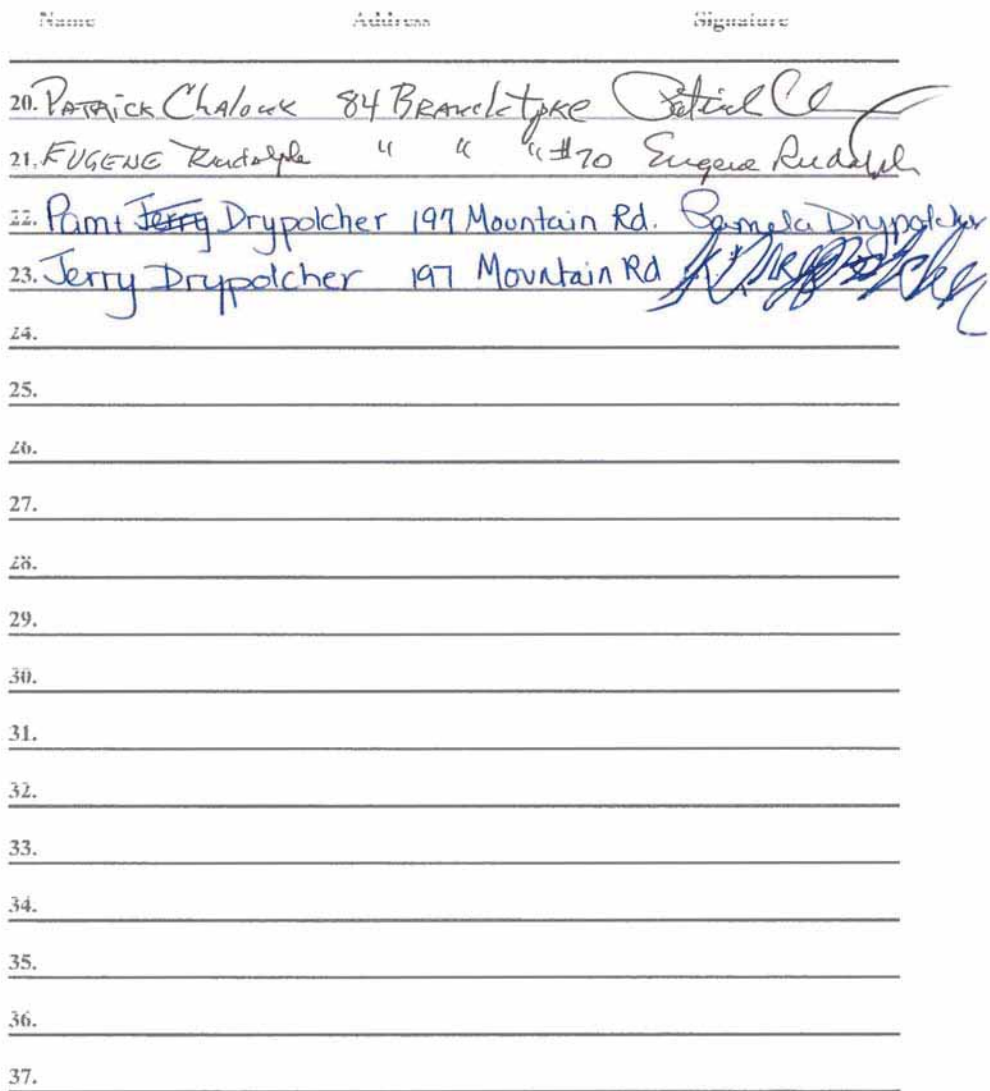 Name Address Signature
20. PATRICK Chalouk 84 BRANCH TPKE
21. EUGENE Rudolph " " " #70 Eugene Rudolph
22. Pam + Jerry Drypolcher 197 Mountain Rd. Pamela Drypolcher
23. Jerry Drypolcher 197 Mountain Rd
24.
25.
26.
27.
28.
29.
30.
31.
32.
33.
34.
35.
36.
37.